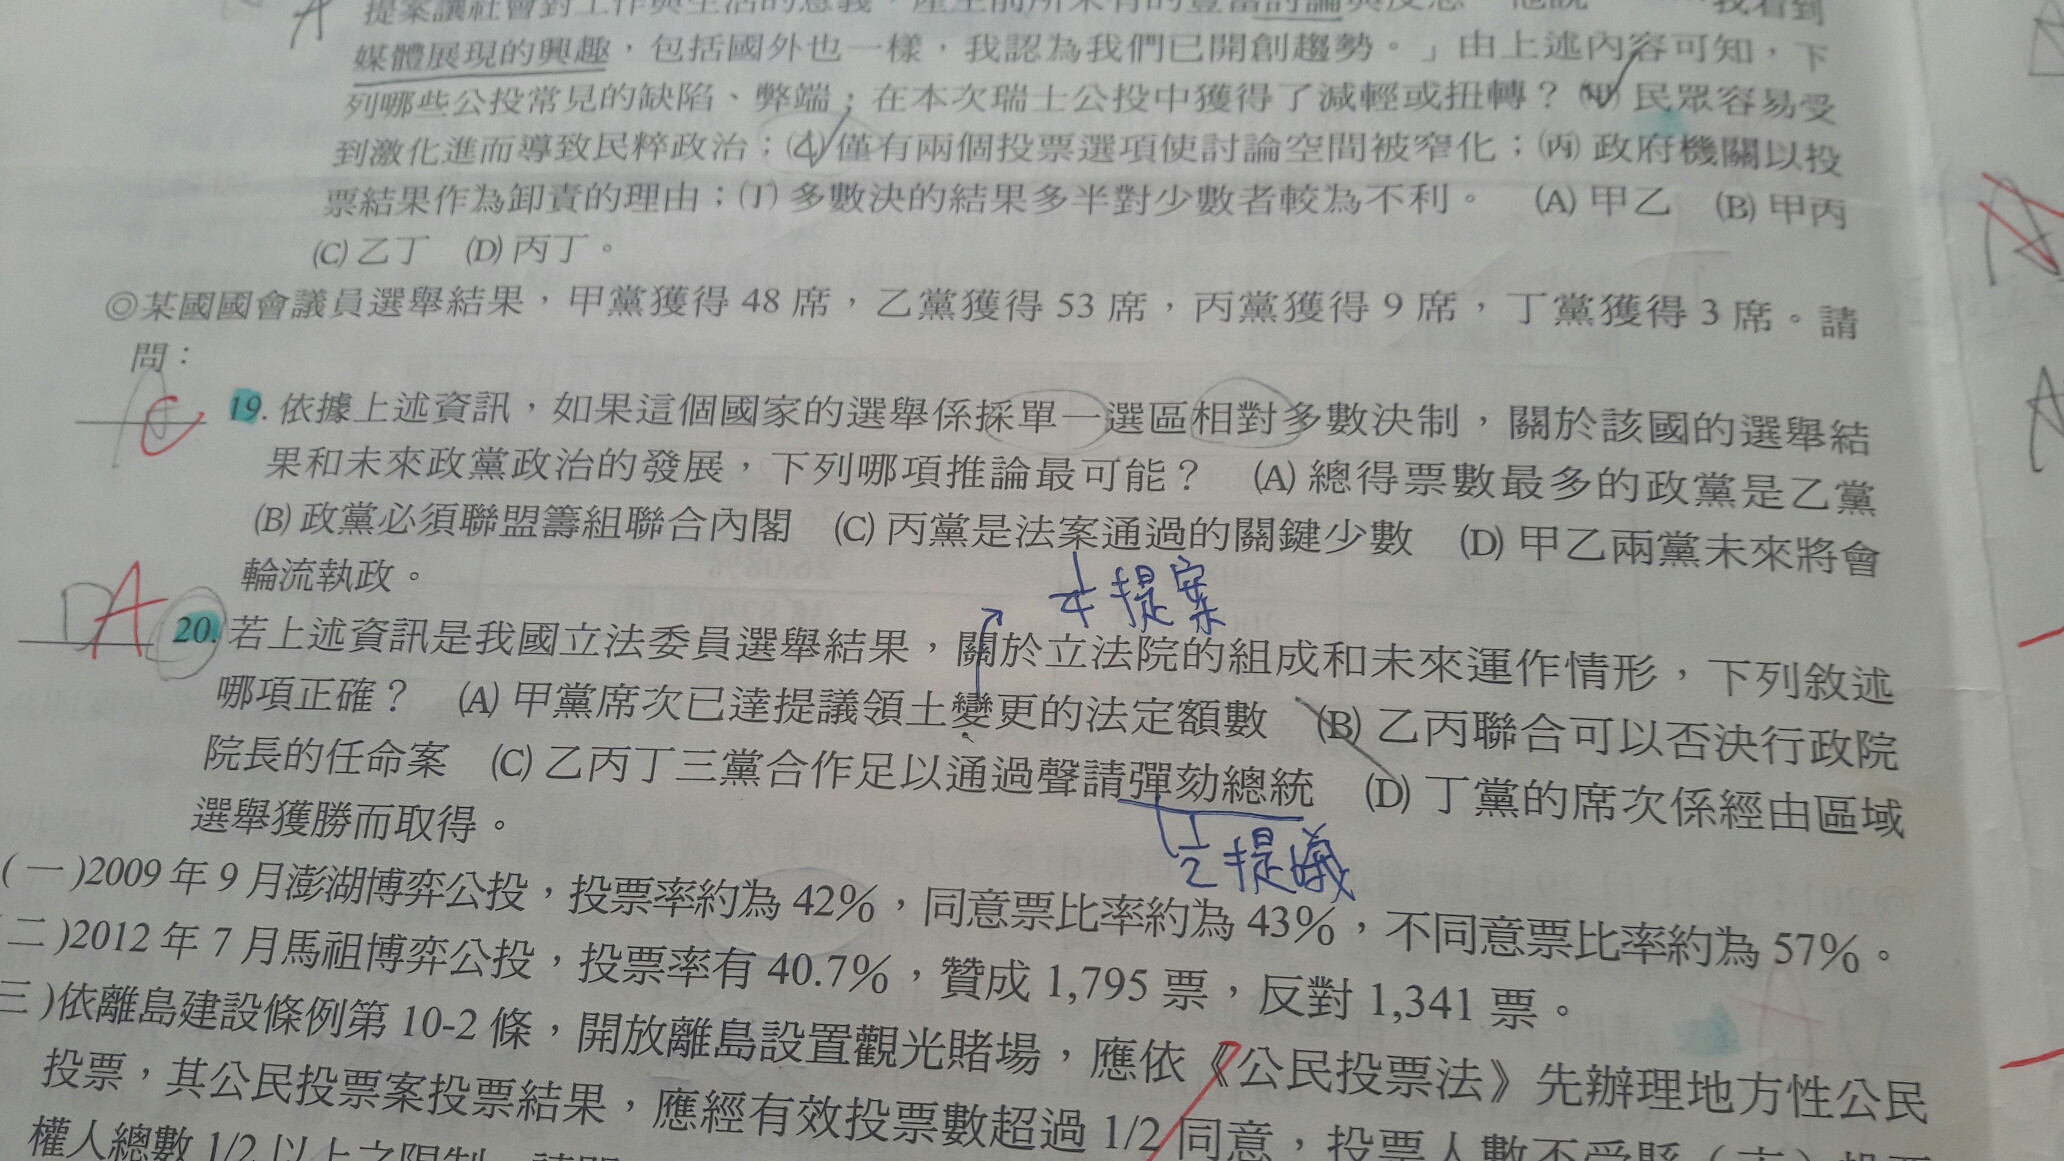 提案讓社會對工作與生活的意義,產生前所未有的豐富討論與反思。他說
我看到
媒體展現的興趣,包括國外也一樣,我認為我們已開創趨勢。」由上述內容可知,下
列哪些公投常見的缺陷、弊端,在本次瑞士公投中獲得了減輕或扭轉?(甲)民眾容易受
到激化進而導致民粹政治;(乙)僅有兩個投票選項使討論空間被窄化;(丙)政府機關以投
票結果作為卸責的理由;(丁)多數決的結果多半對少數者較為不利。 (A)甲乙 (B)甲丙
(C)乙丁 (D)丙丁。
◎某國國會議員選舉結果,甲黨獲得 48 席,乙黨獲得 53 席,丙黨獲得 9 席,丁黨獲得 3 席。請
問:
C 19. 依據上述資訊,如果這個國家的選舉係採單一選區相對多數決制,關於該國的選舉結
果和未來政黨政治的發展,下列哪項推論最可能? (A)總得票數最多的政黨是乙黨
(B)政黨必須聯盟籌組聯合內閣 (C)丙黨是法案通過的關鍵少數 (D)甲乙兩黨未來將會
輪流執政。
1/4 提案
D A 20. 若上述資訊是我國立法委員選舉結果,關於立法院的組成和未來運作情形,下列敘述
哪項正確? (A)甲黨席次已達提議領土變更的法定額數 (B)乙丙聯合可以否決行政院
院長的任命案 (C)乙丙丁三黨合作足以通過聲請彈劾總統 (D)丁黨的席次係經由區域
選舉獲勝而取得。
1/2 提議
(一)2009 年 9 月澎湖博弈公投,投票率約為 42%,同意票比率約為 43%,不同意票比率約為 57%。
二)2012 年 7 月馬祖博弈公投,投票率有 40.7%,贊成 1,795 票,反對 1,341 票。
三)依離島建設條例第 10-2 條,開放離島設置觀光賭場,應依《公民投票法》先辦理地方性公民
投票,其公民投票案投票結果,應經有效投票數超過 1/2 同意,投票人數不受縣(市)投票
權人總數 1/2 以上之限制